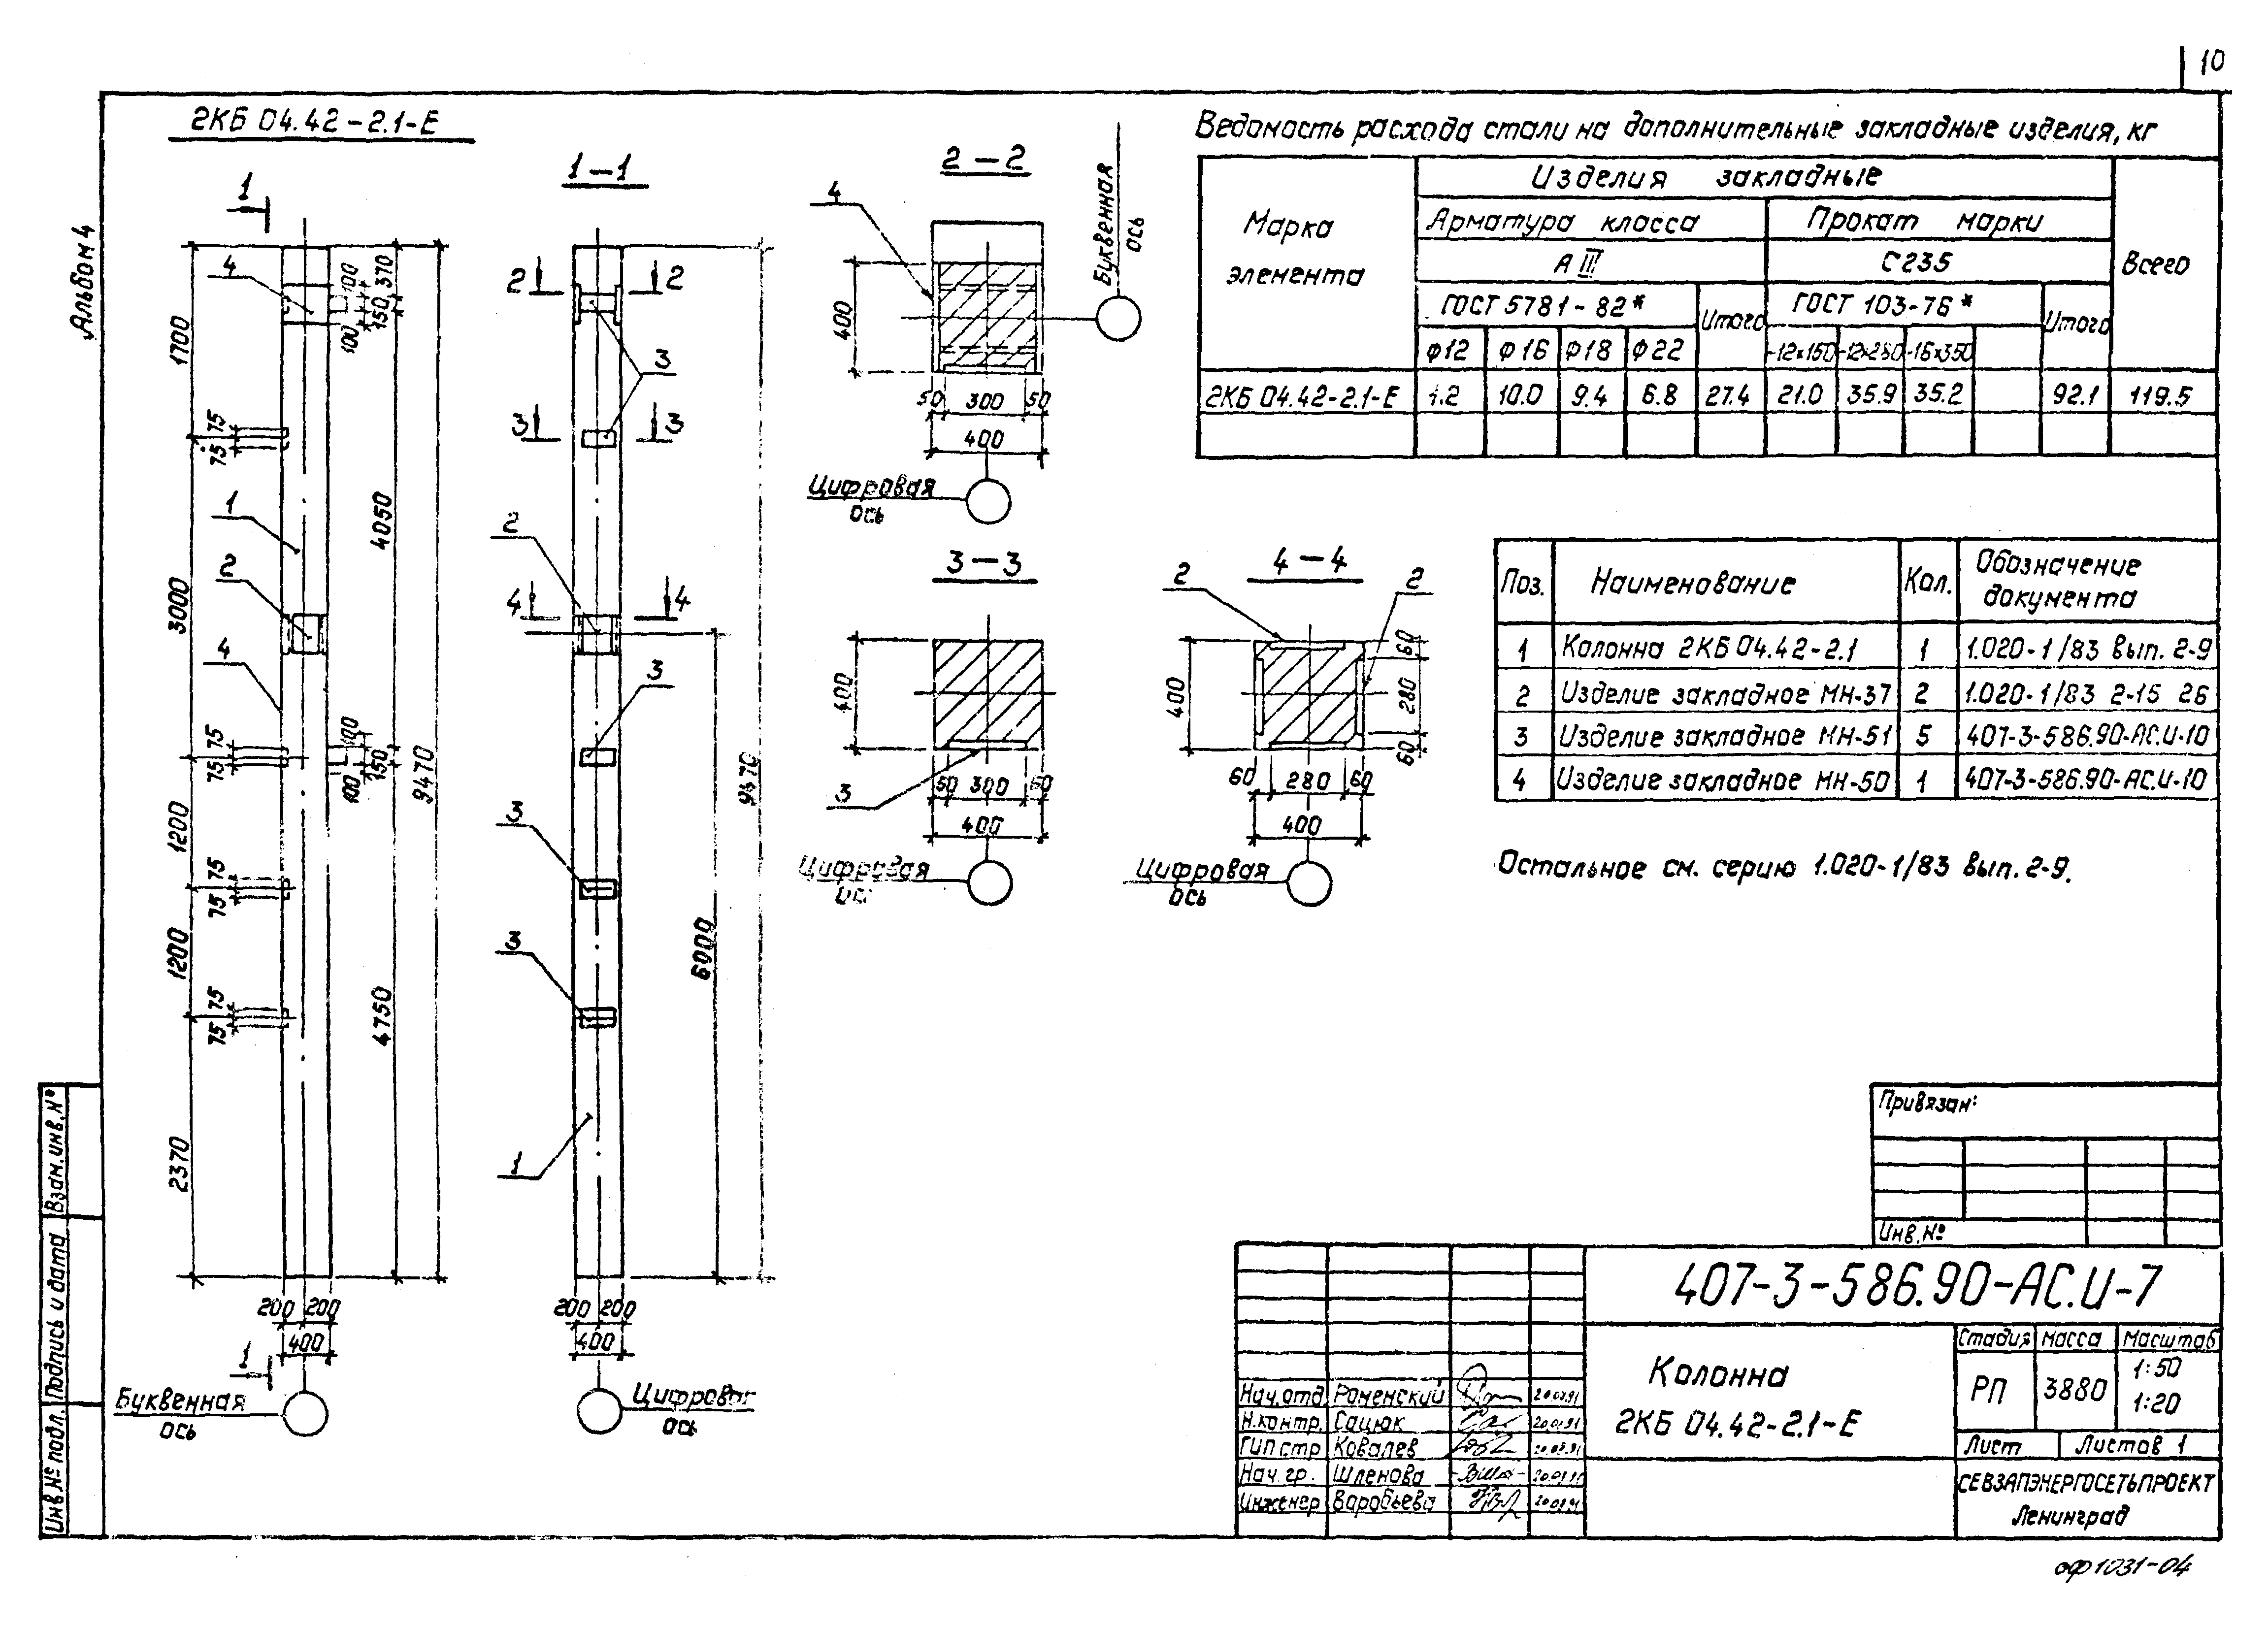 10
Альбом 4
2КБ 04.42-2.1-Е
1
4
1700
75
75
1
3000
2
4
75
75
1200
75
75
1200
75
75
2370
100
370
150
100
4050
100
150
100
9470
4750
200 200
400
1
Буквенная
ось
1-1
2 2
3
3 3
2
4 4
3
3
3
1
9470
6000
200 200
400
Цифровая
ось
2-2
4
Буквенная
ось
400
50 300 50
400
Цифровая
ось
3-3
400
3
50 300 50
400
Цифровая
4-4
2
2
400
60
280
60
60 280 60
400
Цифровая
ось
Ведомость расхода стали на дополнительные закладные изделия, кг
Марка элемента
Изделия закладные
Всего
Арматура класса
Прокат марки
А III
С235
ГОСТ 5781-82*
Итого
ГОСТ 103-76*
Итого
Ф12 Ф16 Ф18 Ф22 -12х150 -12х280 -16х350
2КБ 04.42-2.1-Е 1.2 10.0 9.4 6.8 27.4 21.0 35.9 35.2 92.1 119.5
Поз. Наименование Кол. Обозначение документа
1 Колонна 2КБ 04.42-2.1 1 1.020-1/83 вып. 2-9
2 Изделие закладное МН-37 2 1.020-1/83 2-15 26
3 Изделие закладное МН-51 5 407-3-586.90-АС.И-10
4 Изделие закладное МН-50 1 407-3-586.90-АС.И-10
Остальное см. серию 1.020-1/83 вып. 2-9.
Привязан:
Инв.№
407-3-586.90-АС.И-7
Колонна
2КБ 04.42-2.1-Е
Стадия Масса Масштаб
РП 3880 1:50
1:20
Лист Листов 1
СЕВЗАПЭНЕРГОСЕТЬПРОЕКТ
Ленинград
Нач.отд. Роменский
Н.контр. Сацюк
ГИП стр. Ковалев
Нач.гр. Шленова
Инженер Воробьева
Взам.инв.№
Подпись и дата
Инв.№ подл.
оф1031-04